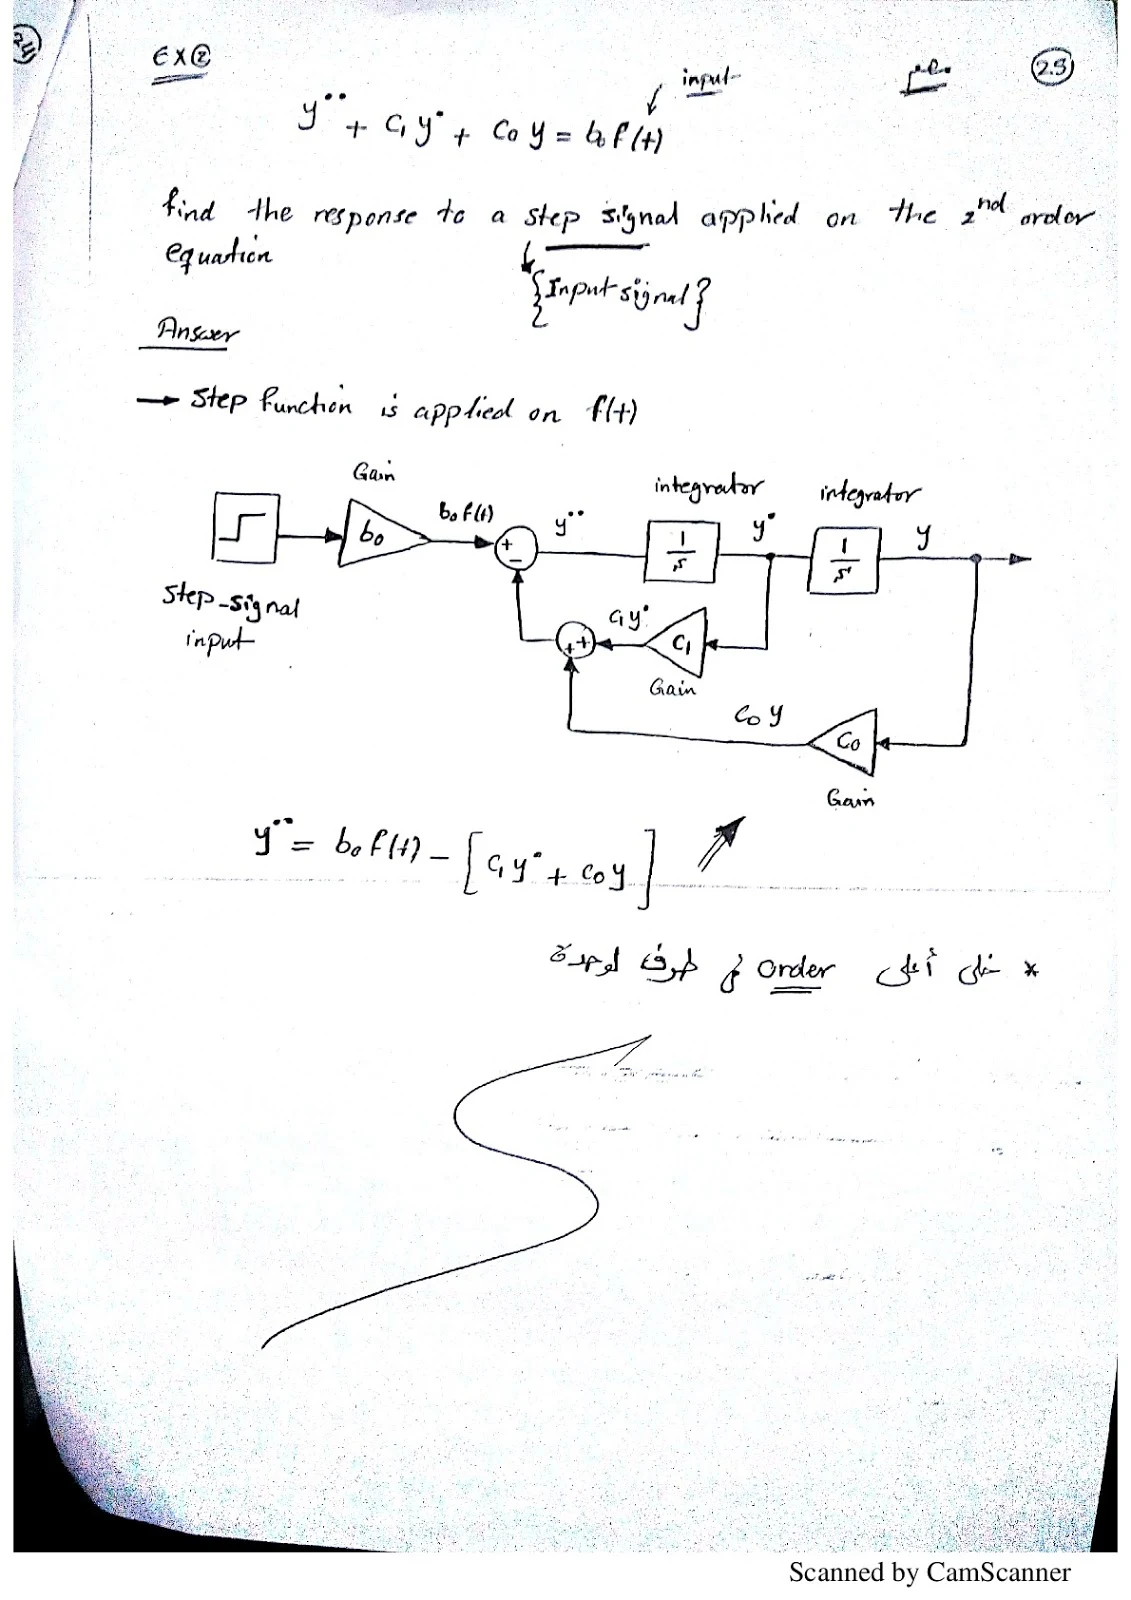 EX②
مهم
25
input
y¨ + C₁ y˙ + C₀ y = b₀ f(t)
find the response to a step signal applied on the 2nd order
equation
{Input signal}
Answer
→ Step function is applied on f(t)
Gain
integrator
integrator
b₀
b₀ f(t)
+
−
y¨
1/s
y˙
1/s
y
step-signal
input
C₁ y˙
+ +
C₁
Gain
C₀ y
C₀
Gain
y¨ = b₀ f(t) − [C₁ y˙ + C₀ y]
* خلى أعلى order في طرف لوحدة
Scanned by CamScanner